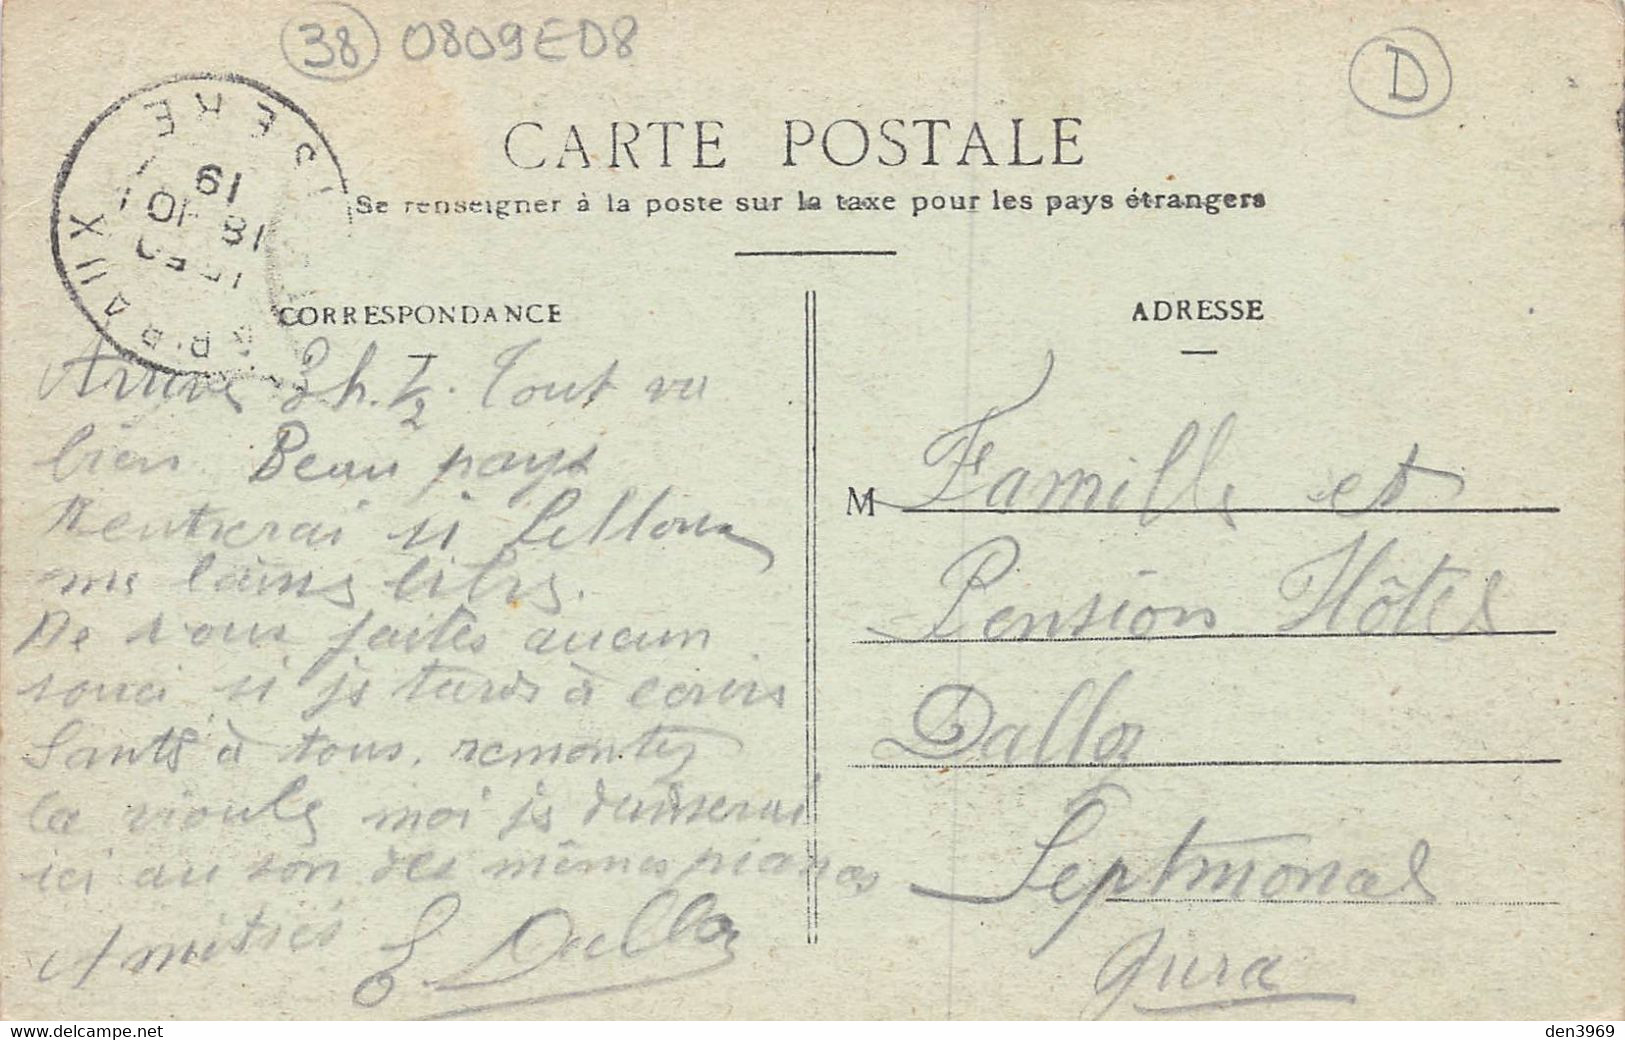 38 0809ED8
D
CARTE POSTALE
Se renseigner à la poste sur la taxe pour les pays étrangers
ISERE
19
18 10
CORRESPONDANCE
ADRESSE
Arrivé 3h. 1/2. Tout va
bien Beau pays
Rentrerai si
me laiss libre.
De vous faites aucun
souci si je tarde à écrire
Santé à tous, remontez
la moi je danserai
ici au son des mêmes pianos
Amitiés E. Dalloz
M Famille et
Pension Hôtel
Dalloz
Septmoncel
Jura
den3969